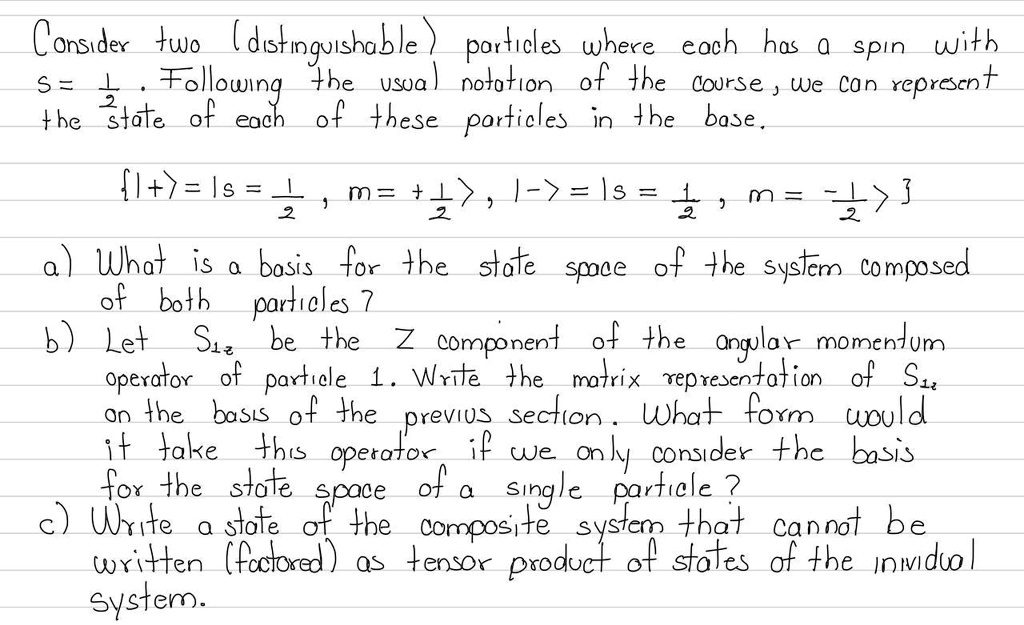 Consider two (distinguishable) particles where each has a spin with
s = 1/2 . Following the usual notation of the course, we can represent
the state of each of these particles in the base.
{|+⟩ = |s = 1/2 , m = +1/2⟩, |-⟩ = |s = 1/2 , m = -1/2⟩}
a) What is a basis for the state space of the system composed
of both particles?
b) Let S₁z be the Z component of the angular momentum
operator of particle 1. Write the matrix representation of S₁z
on the basis of the previus section. What form would
it take this operator if we only consider the basis
for the state space of a single particle?
c) Write a state of the composite system that cannot be
written (factored) as tensor product of states of the inividual
system.